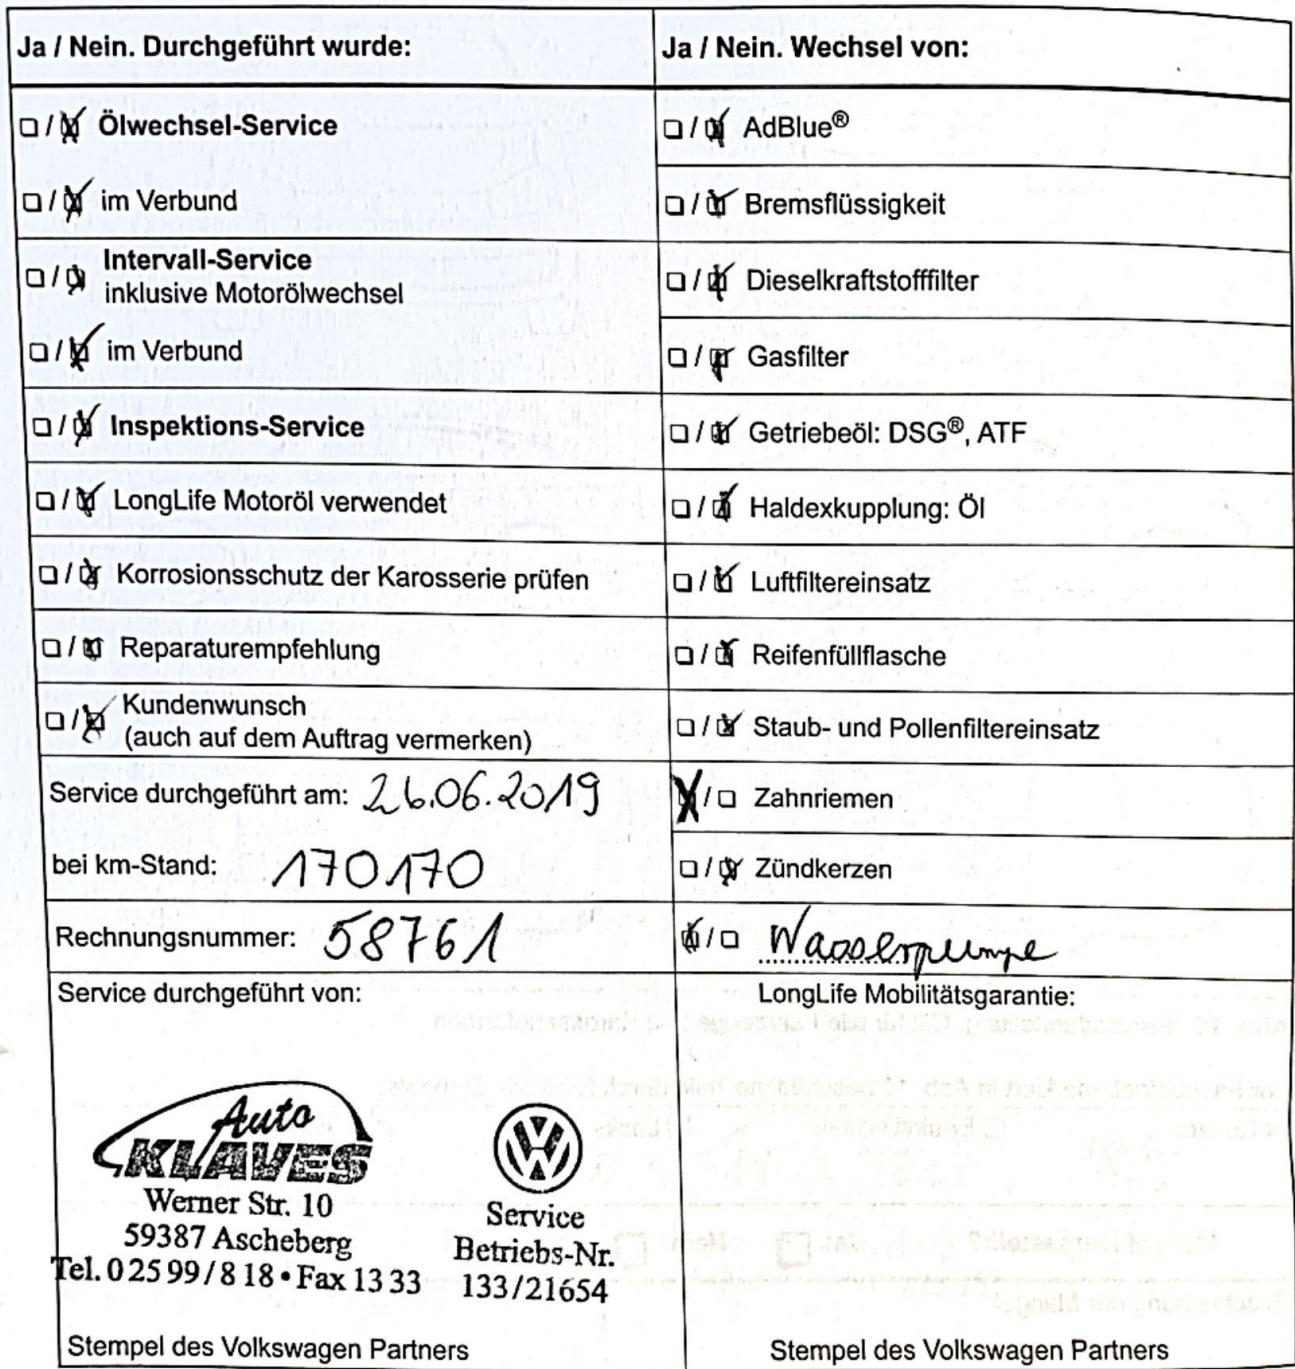 Ja / Nein. Durchgeführt wurde:
Ölwechsel-Service
im Verbund
Intervall-Service
inklusive Motorölwechsel
im Verbund
Inspektions-Service
LongLife Motoröl verwendet
Korrosionsschutz der Karosserie prüfen
Reparaturempfehlung
Kundenwunsch
(auch auf dem Auftrag vermerken)
Service durchgeführt am: 26.06.2019
bei km-Stand: 170.170
Rechnungsnummer: 58761
Service durchgeführt von:
Auto
KLAVES
Werner Str. 10
59387 Ascheberg
Tel. 0 25 99 / 8 18 • Fax 13 33
VW
Service
Betriebs-Nr.
133/21654
Stempel des Volkswagen Partners
Ja / Nein. Wechsel von:
AdBlue®
Bremsflüssigkeit
Dieselkraftstofffilter
Gasfilter
Getriebeöl: DSG®, ATF
Haldexkupplung: Öl
Luftfiltereinsatz
Reifenfüllflasche
Staub- und Pollenfiltereinsatz
Zahnriemen
Zündkerzen
Wasserpumpe
LongLife Mobilitätsgarantie:
Stempel des Volkswagen Partners